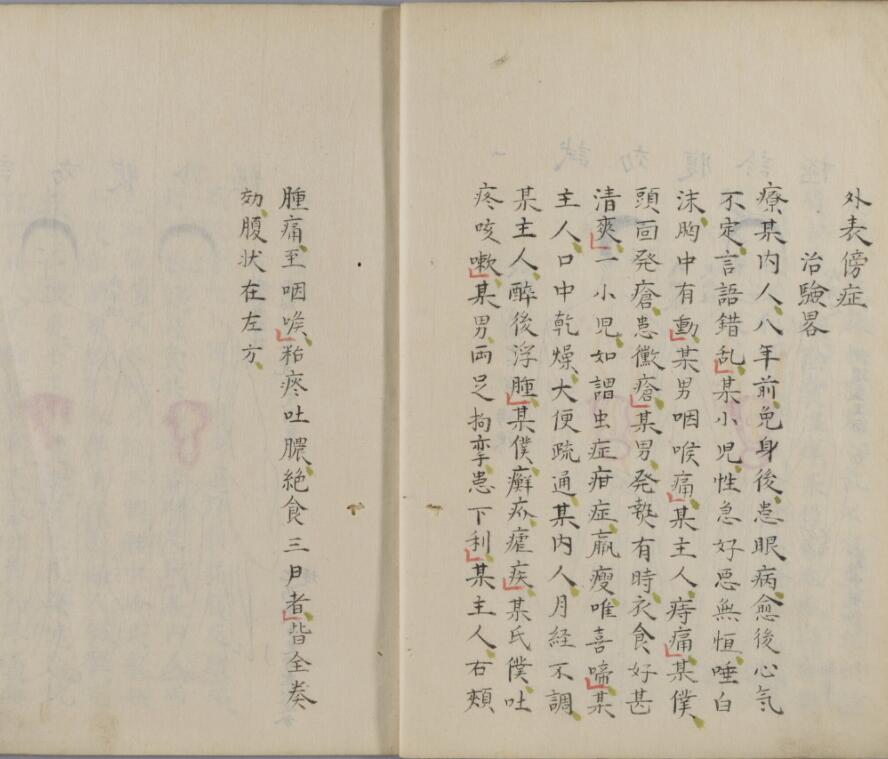 外表傍症
治驗畧
療某内人、八年前、免身後、患眼病、愈後心気
不定、言語錯乱、某小児、性急好悪無恒、唾白
沫、胸中有動、某男咽喉痛、某主人、痔痛、某僕、
頭面発瘡、患黴瘡、某男、発熱有時、衣食好甚
清爽、一小児、如謂虫症疳症、羸瘦唯喜啼、某
主人、口中乾燥、大便疏通、某内人、月経不調、
某主人、酔後浮腫、某僕、癬疥瘧疾、某氏僕、吐
疼咳嗽、某男、両足拘挛、患下利、某主人、右頬
腫痛、至咽喉、粘疼吐膿、絶食三日者、皆全奏
効、腹状在左方、